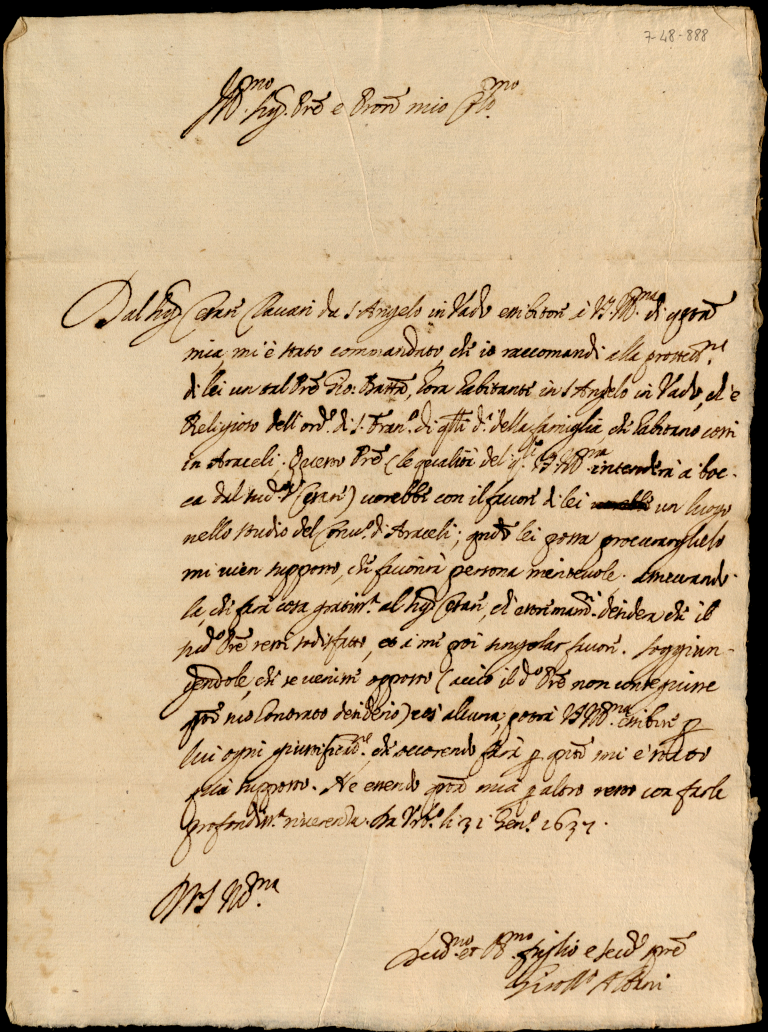 7-48-888
Ill.mo Sig.r Pre e Pron mio Col.mo
Dal Sig.r Cesare Clavari da S Angelo in Vado essibitore à V.S. Ill.ma di questa
mia mi è stato commandato, che io raccomandi alla protett.ne
di lei un tal Pre Gio: Batta, hora habitante in S Angelo in Vado, ch'è
Religioso dell'ord.e di S. Fran.co di q.lli d.i della famiglia, che habitano costì
in Araceli. Questo Pre (le qualità del q.le V.S. Ill.ma intenderà a boc-
ca dal sud.o S.r Cesare) vorebbe con il favore di lei un luogo
nello studio del Conv.o di Araceli; quale lei possa procurarglielo
mi vien supposto, che favorirà persona meritevole. Assicurando-
la, che farà cosa gratiss.a al Sig.r Cesare, ch'estremam.e desidera che il
sud.o Pre resti sodisfatto, et à me poi singolar favore. Soggiun-
gendole, che se venisse opposto (acciò il d.o Pre non conseguisse
questo suo honorato desiderio) cosa alcuna, potrà V.S. Ill.ma essibire p
lui ogni giustificat.ne, che occorendo farà p quanto mi è stato
quà supposto. Ne essendo questa mia p altro resto con farle
profondiss.a riverenza. Da Urb.o li 31 Gen.o 1637.
D V S Ill.ma
Devo.mo et Obl.mo figlio e ser.re
Albani